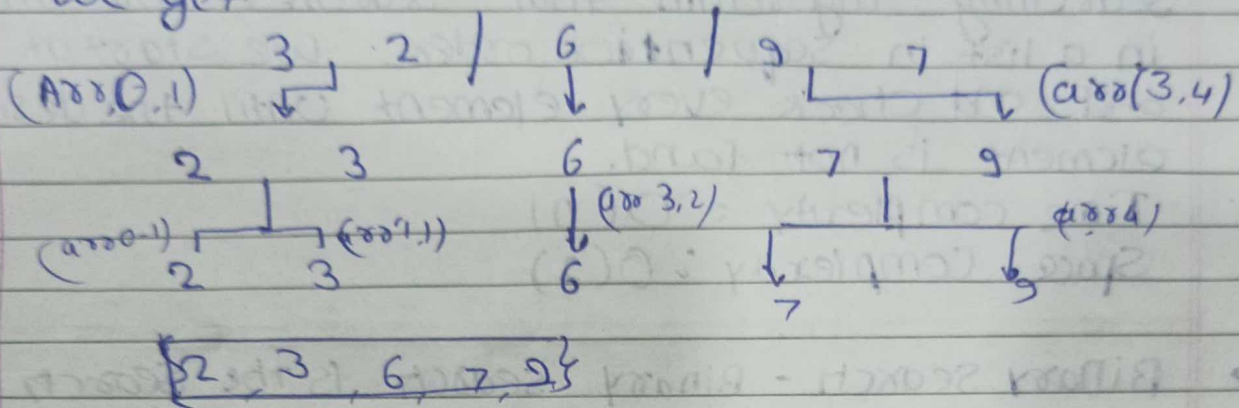 we get
3 2 / 6 / 9 7
(Arr, 0, 1) (arr(3,4)
2 3 6 7 9
(arr0-1) (arr1,1) (arr 3,2) (arr4)
2 3 6 7 9
{2, 3, 6, 7, 9}